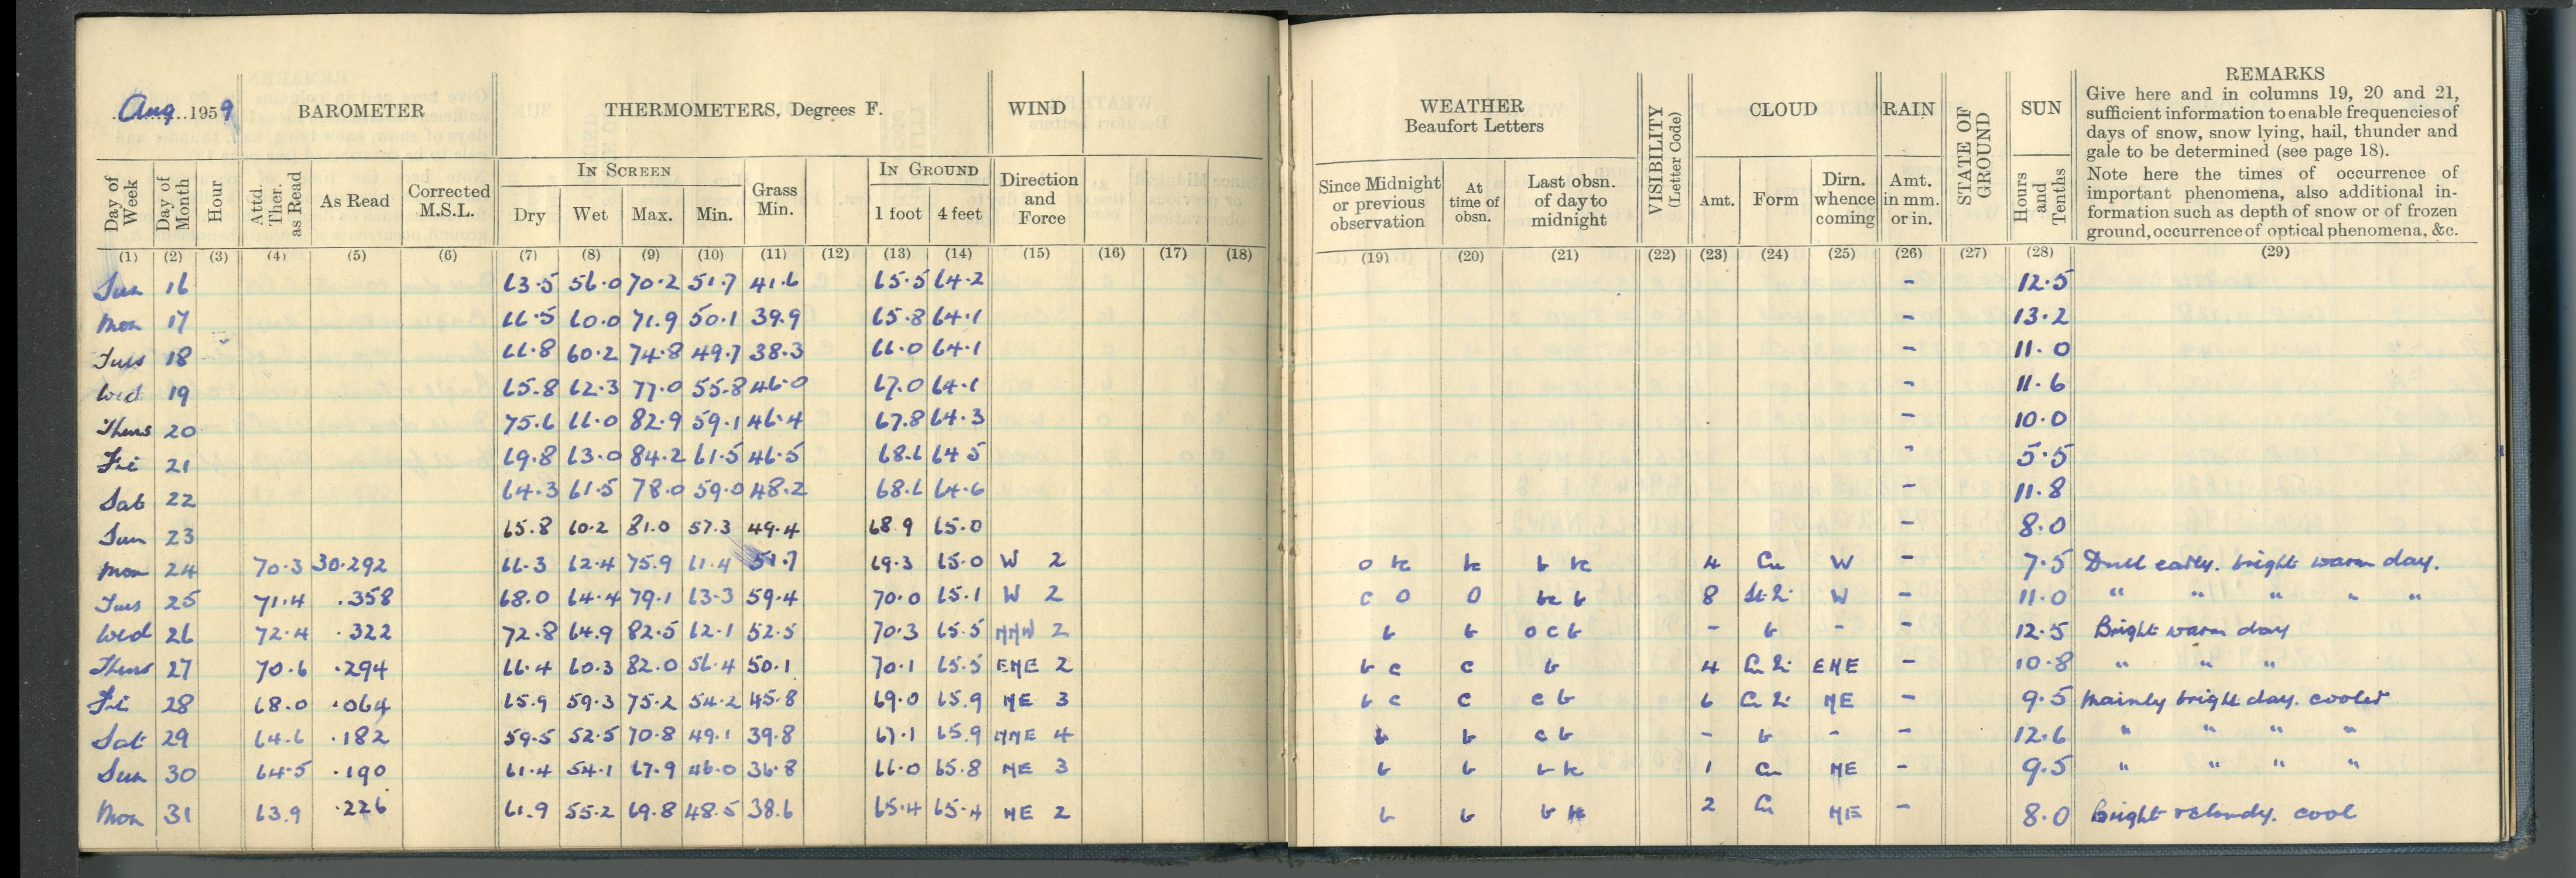 Aug 1959 BAROMETER THERMOMETERS, Degrees F. WIND
IN SCREEN IN GROUND
Day of Week Day of Month Hour Attd. Ther. as Read As Read Corrected M.S.L. Dry Wet Max. Min. Grass Min. 1 foot 4 feet Direction and Force
(1) (2) (3) (4) (5) (6) (7) (8) (9) (10) (11) (12) (13) (14) (15) (16) (17) (18)
Sun 16 63.5 56.0 70.2 51.7 41.6 65.5 64.2
Mon 17 66.5 60.0 71.9 50.1 39.9 65.8 64.1
Tues 18 66.8 60.2 74.8 49.7 38.3 66.0 64.1
Wed 19 65.8 62.3 77.0 55.8 46.0 67.0 64.1
Thurs 20 75.6 66.0 82.9 59.1 46.4 67.8 64.3
Fri 21 69.8 63.0 84.2 61.5 46.5 68.6 64 5
Sat 22 64.3 61.5 78.0 59.0 48.2 68.6 64.6
Sun 23 65.8 60.2 81.0 57.3 49.4 68 9 65.0
Mon 24 70.3 30.292 66.3 62.4 75.9 61.4 51.7 69.3 65.0 W 2
Tues 25 71.4 .358 68.0 64.4 79.1 63.3 59.4 70.0 65.1 W 2
Wed 26 72.4 .322 72.8 64.9 82.5 62.1 52.5 70.3 65.5 NNW 2
Thurs 27 70.6 .294 66.4 60.3 82.0 56.4 50.1 70.1 65.5 ENE 2
Fri 28 68.0 .064 65.9 59.3 75.2 54.2 45.8 69.0 65.9 NE 3
Sat 29 64.6 .182 59.5 52.5 70.8 49.1 39.8 67.1 65.9 NNE 4
Sun 30 64.5 .190 61.4 54.1 67.9 46.0 36.8 66.0 65.8 NE 3
Mon 31 63.9 .226 61.9 55.2 69.8 48.5 38.6 65.4 65.4 NE 2
WEATHER Beaufort Letters VISIBILITY (Letter Code) CLOUD RAIN STATE OF GROUND SUN REMARKS
Since Midnight or previous observation At time of obsn. Last obsn. of day to midnight Amt. Form Dirn. whence coming Amt. in mm. or in. Hours and Tenths
Give here and in columns 19, 20 and 21,
sufficient information to enable frequencies of
days of snow, snow lying, hail, thunder and
gale to be determined (see page 18).
Note here the times of occurrence of
important phenomena, also additional in-
formation such as depth of snow or of frozen
ground, occurrence of optical phenomena, &c.
(19) (20) (21) (22) (23) (24) (25) (26) (27) (28) (29)
- 12.5
- 13.2
- 11.0
- 11.6
- 10.0
- 5.5
- 11.8
- 8.0
o bc bc b bc 4 Cu W - 7.5 Dull early. bright warm day.
c o o bc b 8 W - 11.0 " " " " "
b b o c b - b - - 12.5 Bright warm day
b c c b 4 ENE - 10.8 " " "
b c c c b 6 NE - 9.5 Mainly bright day. cooler
b b c b - b - - 12.6 " " " "
b b b bc 1 Cu NE - 9.5 " " " "
b b b bc 2 Cu NE - 8.0 bright & cloudy. cool